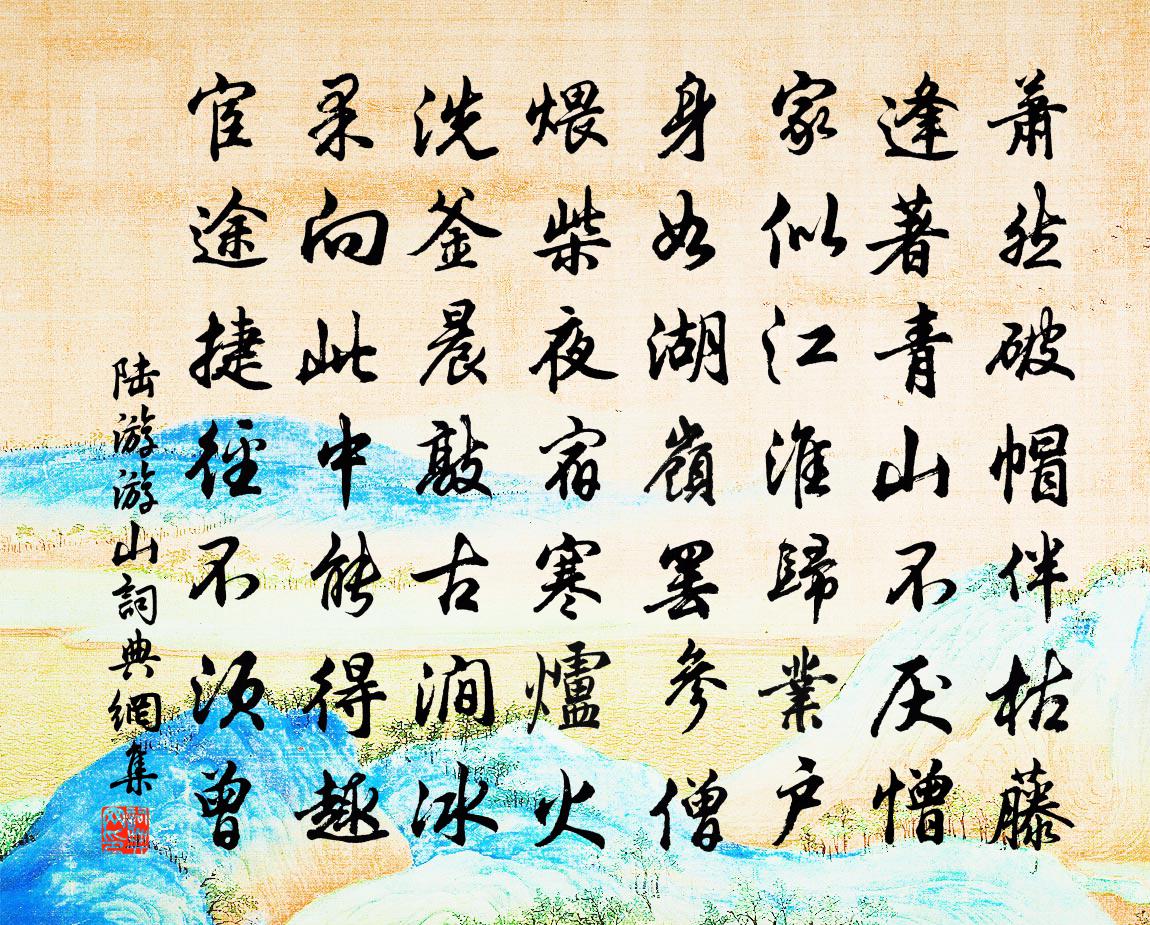 蕭然破帽伴枯藤
逢著青山不厌憎
家似江淮歸業户
身如湖嶺罢參僧
煨柴夜宿寒爐火
洗釜晨敲古澗冰
果向此中能得趣
宦途捷徑不须曾
陆游游山詞典網集